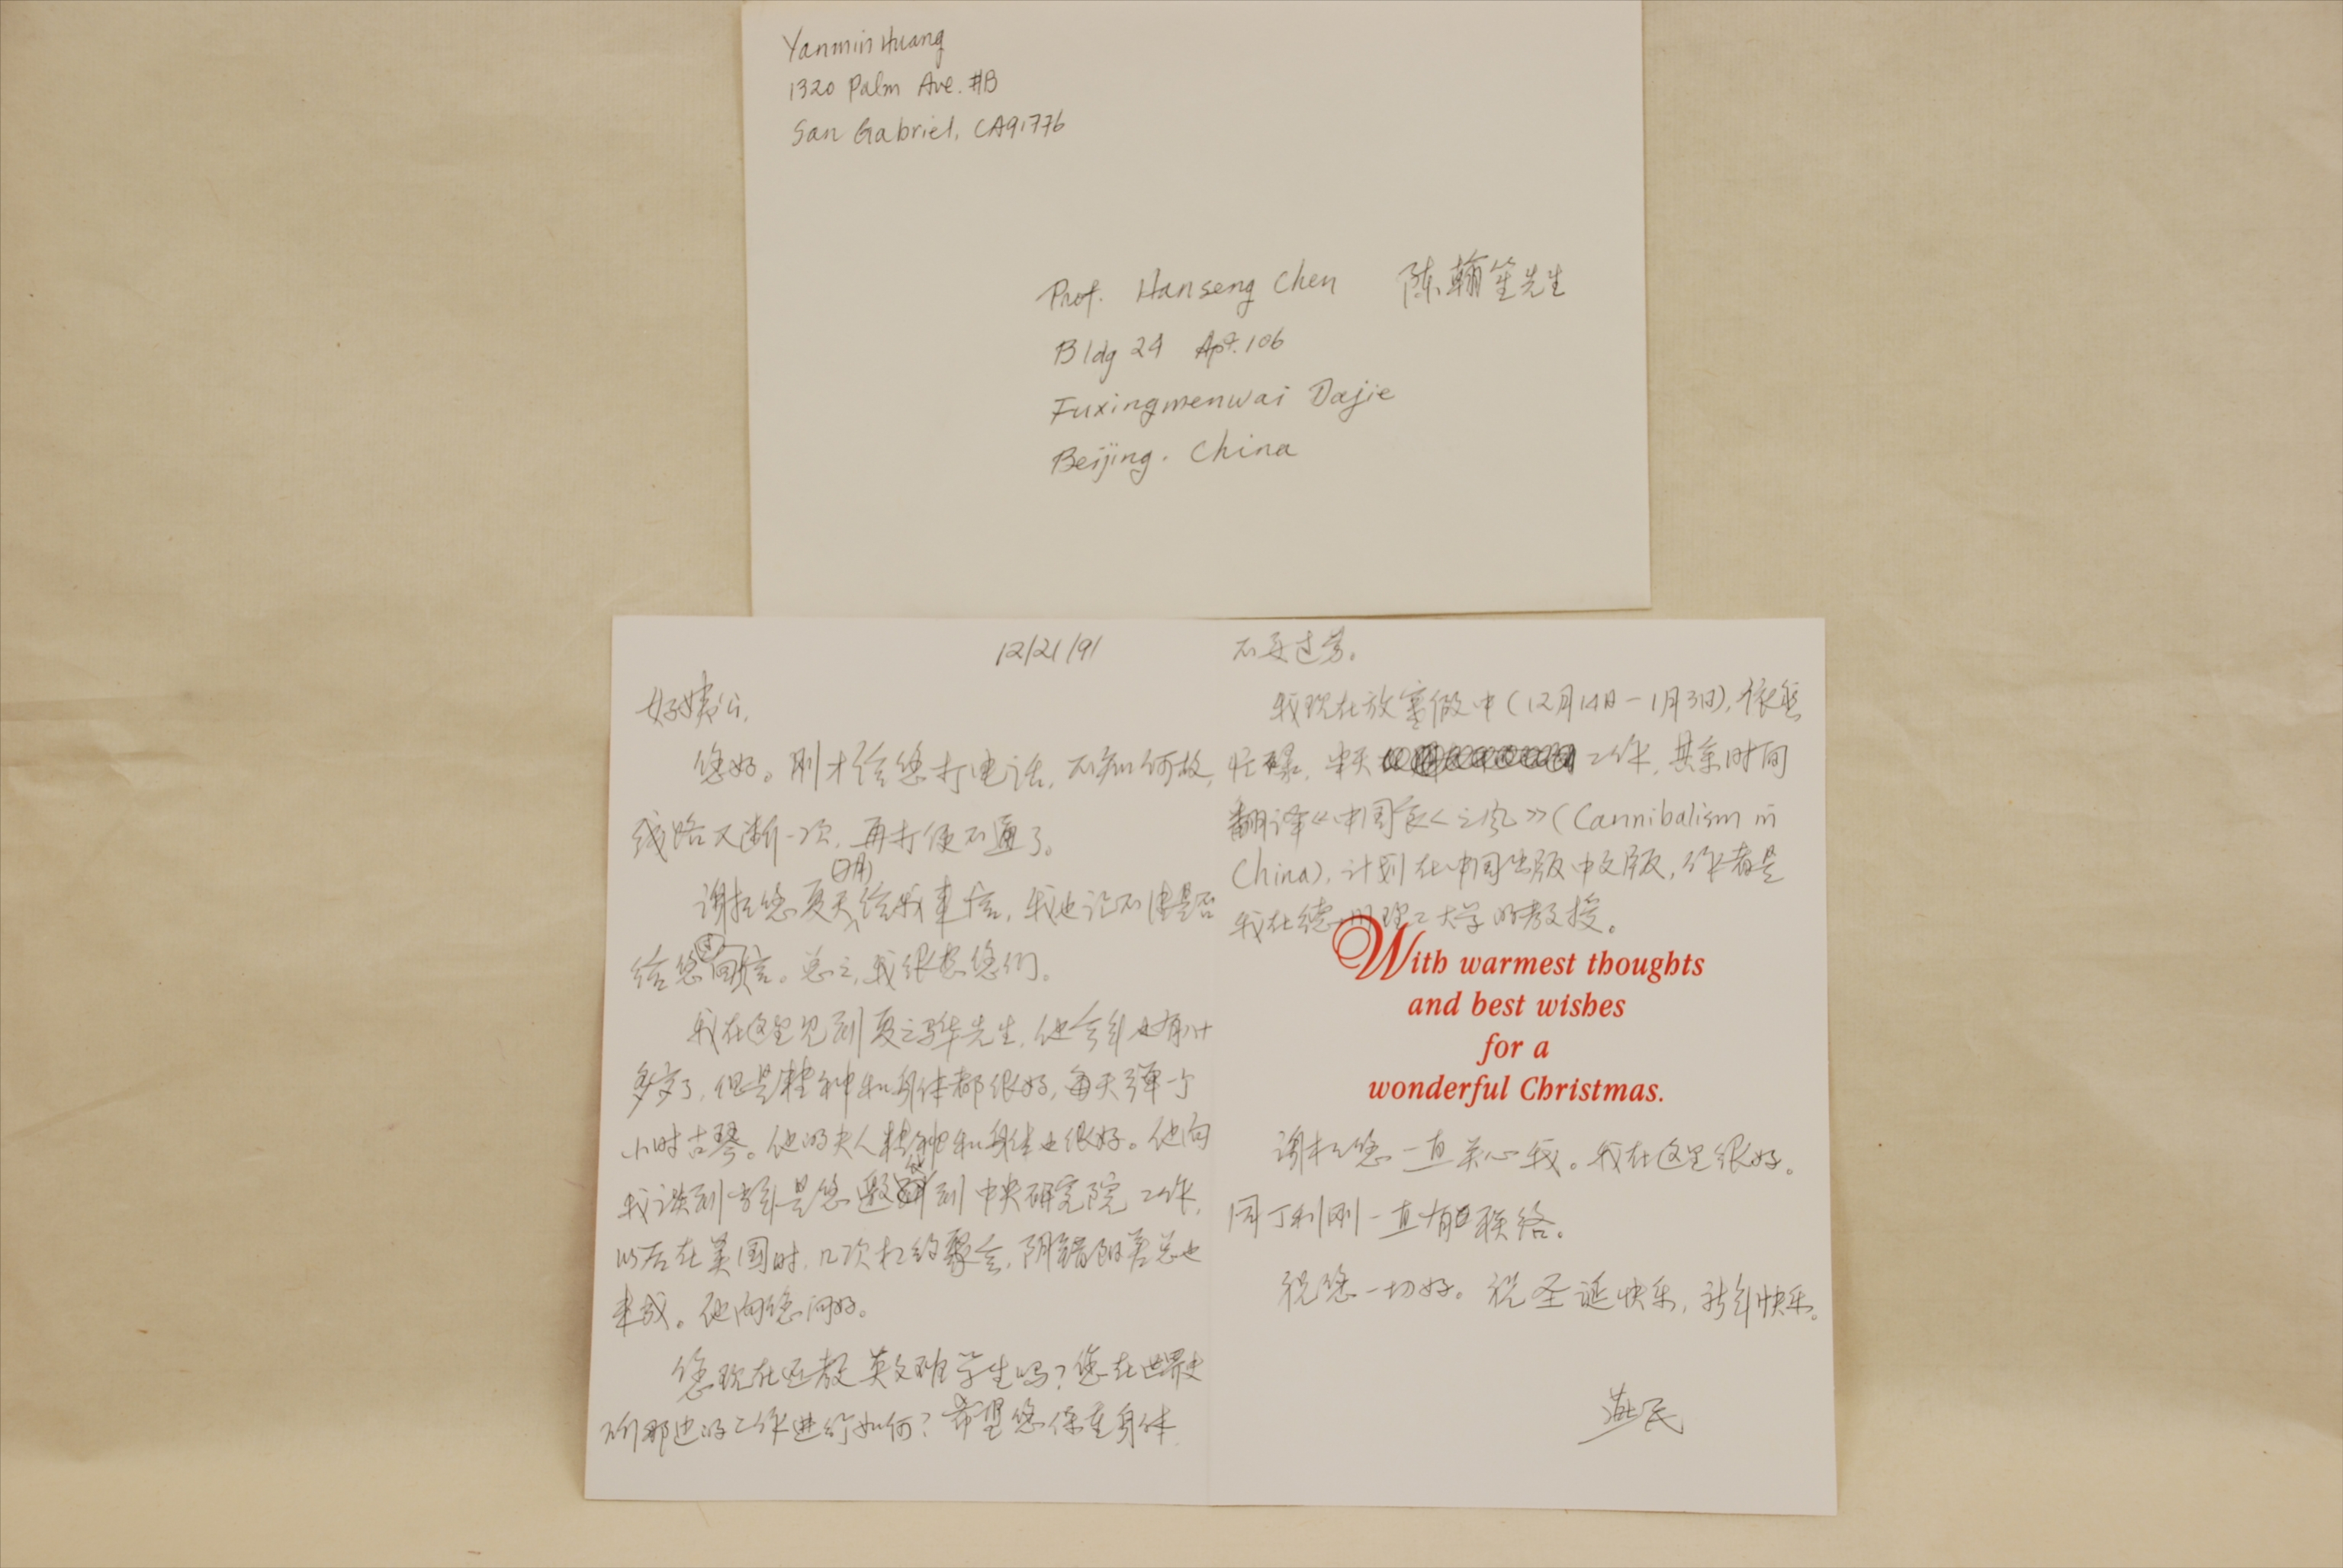 Yanmin Huang
1320 Palm Ave. #B
San Gabriel, CA91776
Prof. Hanseng Chen 陈翰笙先生
Bldg 24 Apt. 106
Fuxingmenwai Dajie
Beijing. China
12/21/91
好姨公,
您好。刚才给您打电话,不知何故,
线路又断一次,再打便不通了。
谢谢您夏天(7月)给我来信,我也记不清是否
给您回过信。总之,我很想您们。
我在这里见到夏之骅先生,他今年也有八十
多岁了,但是精神和身体都很好,每天弹一个
小时古琴。他的夫人精神和身体也很好。他向
我谈到当年是您邀他到中央研究院工作,
以后在美国时,几次相约聚会,阴错阳差总也
未成。他向您问好。
您现在还教英文班学生吗?您在世界史
所那边的工作进行如何?希望您保重身体
不要过劳。
我现在放寒假中(12月14日-1月3日),依然
忙碌,半天工作,其余时间
翻译《中国食人之风》(Cannibalism in
China),计划在中国出版中文版,作者是
我在德州理工大学的教授。
With warmest thoughts
and best wishes
for a
wonderful Christmas.
谢谢您一直关心我。我在这里很好。
同丁利刚一直有联络。
祝您一切好。祝圣诞快乐,新年快乐。
燕民